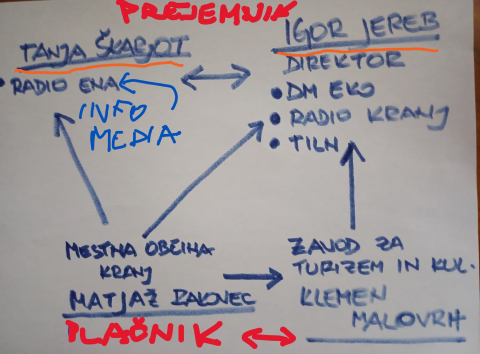 PREJEMNIK
TANJA ŠKARJOT
• RADIO ENA
INFO
MEDIA
IGOR JEREB
DIREKTOR
• DM EKO
• RADIO KRANJ
• TILN
MESTNA OBČINA
KRANJ
MATJAŽ RAKOVEC
PLAČNIK
ZAVOD ZA
TURIZEM IN KUL.
KLEMEN
MALOVRH